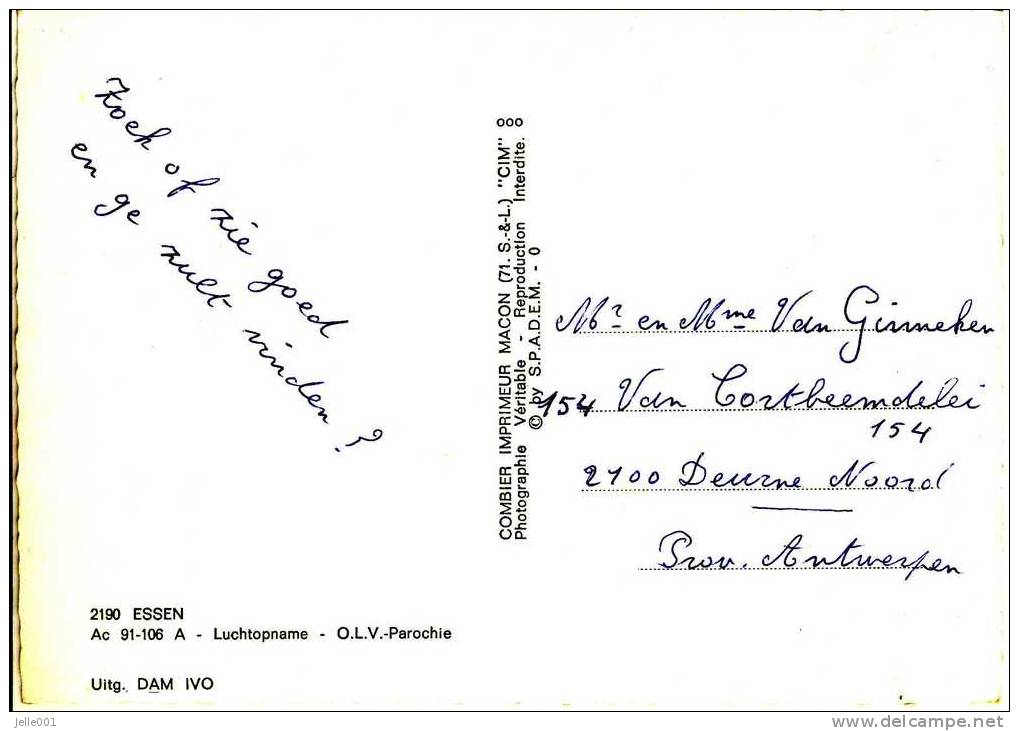 Zoek of zie goed
en ge zult vinden?
2190 ESSEN
Ac 91-106 A - Luchtopname - O.L.V.-Parochie
Uitg. DAM IVO
COMBIER IMPRIMEUR MACON (71. S.-&-L.) "CIM" ooo
Photographie Véritable - Reproduction Interdite.
© by S.P.A.D.E.M. - 0
Mr en Mme Van Ginneken
154 Van Cortbeemdelei
154
2100 Deurne Noord
Prov. Antwerpen
jelle001
www.delcampe.net